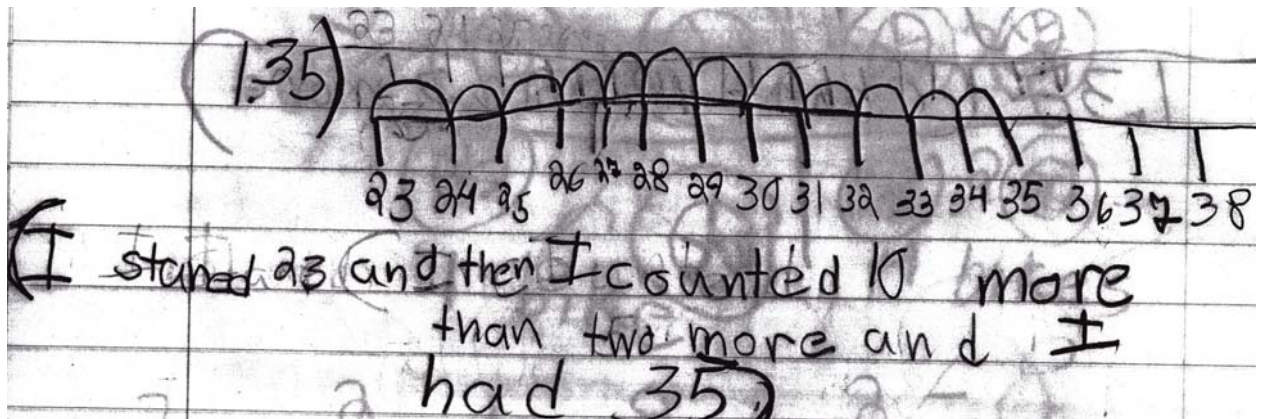 1.35)
23 24 25 26 27 28 29 30 31 32 33 34 35 36 37 38
(I started 23 and then I counted 10 more
than two more and I
had 35)